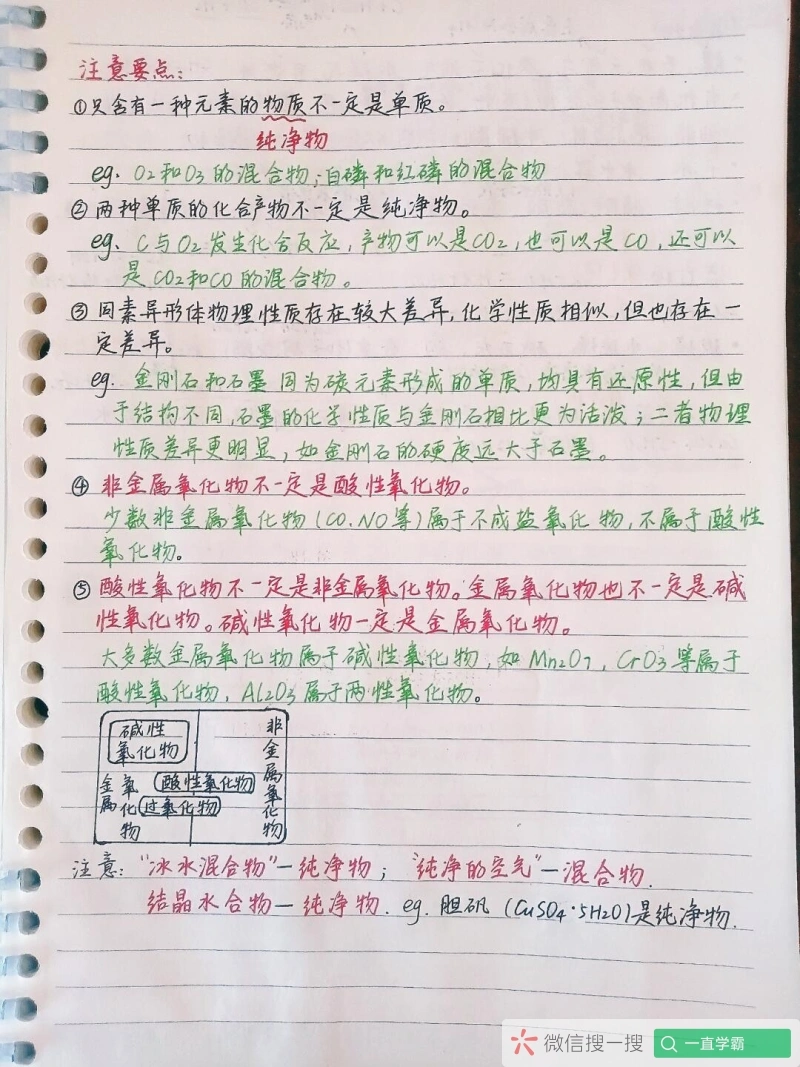 注意要点:
①只含有一种元素的物质不一定是单质。
纯净物
eg. O2和O3的混合物;白磷和红磷的混合物
②两种单质的化合产物不一定是纯净物。
eg. C与O2发生化合反应,产物可以是CO2,也可以是CO,还可以
是CO2和CO的混合物。
③同素异形体物理性质存在较大差异,化学性质相似,但也存在一
定差异。
eg. 金刚石和石墨 同为碳元素形成的单质,均具有还原性,但由
于结构不同,石墨的化学性质与金刚石相比更为活泼;二者物理
性质差异更明显,如金刚石的硬度远大于石墨。
④非金属氧化物不一定是酸性氧化物。
少数非金属氧化物(CO.NO等)属于不成盐氧化物,不属于酸性
氧化物。
⑤酸性氧化物不一定是非金属氧化物。金属氧化物也不一定是碱
性氧化物。碱性氧化物一定是金属氧化物。
大多数金属氧化物属于碱性氧化物,如Mn2O7,CrO3等属于
酸性氧化物,Al2O3属于两性氧化物。
碱性
氧化物
金属
氧化物
酸性氧化物
过氧化物
非金属氧化物
注意:"冰水混合物"—纯净物;"纯净的空气"—混合物.
结晶水合物—纯净物. eg. 胆矾(CuSO4·5H2O)是纯净物.
微信搜一搜
一直学霸